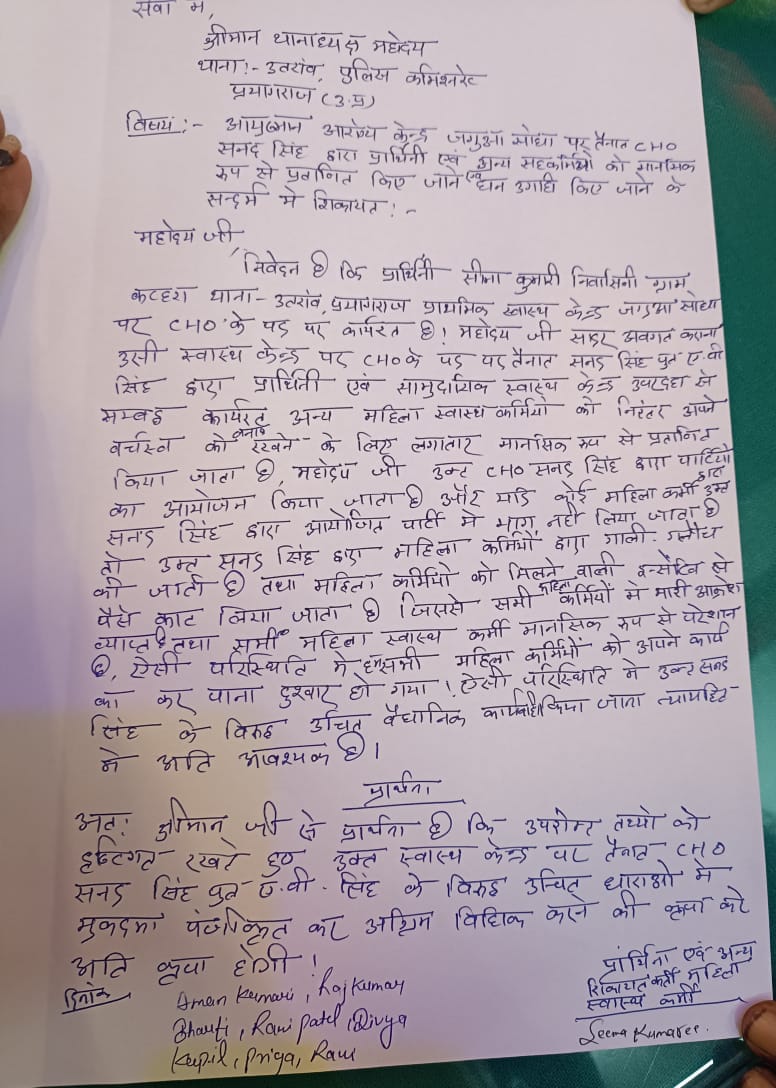 सेवा में,
श्रीमान थानाध्यक्ष महोदय
थाना :- उतरांव, पुलिस कमिश्नरेट
प्रयागराज (उ.प्र)
विषय :- आयुष्मान आरोग्य केन्द्र जगुआ सोधा पर तैनात CHO
सनद सिंह द्वारा प्रार्थिनी एवं अन्य सहकर्मियो को मानसिक
रूप से प्रताणित किए जाने एवं धन उगाही किए जाने के
सन्दर्भ मे शिकायत ! -
महोदय जी,
निवेदन है कि प्रार्थिनी सीमा कुमारी निवासिनी ग्राम
कटहरा थाना - उतरांव, प्रयागराज प्राथमिक स्वास्थ केन्द्र जगुआ सोधा
पर CHO के पद पर कार्यरत है! महोदय जी सादर अवगत कराना
उसी स्वास्थ केन्द्र पर CHO के पद पर तैनात सनद सिंह पुत्र ए.वी
सिंह द्वारा प्रार्थिनी एवं सामुदायिक स्वास्थ केन्द्र उपरदहा से
सम्बद्ध कार्यरत अन्य महिला स्वास्थ कर्मियो को निरंतर अपने
वर्चस्व को बनाए रखने के लिए लगातार मानसिक रूप से प्रताणित
किया जाता है, महोदय जी उक्त CHO सनद सिंह द्वारा पार्टियो
का आयोजन किया जाता है और यदि कोई महिला कर्मी द्वारा उक्त
सनद सिंह द्वारा आयोजित पार्टी मे भाग नही लिया जाता है
तो उक्त सनद सिंह द्वारा महिला कर्मियों द्वारा गाली-गलौच
की जाती है तथा महिला कर्मियो को मिलने वाली इन्सेंटिव से
पैसे काट लिया जाता है जिससे सभी महिला कर्मियों मे भारी आक्रोश
व्याप्त है तथा सभी महिला स्वास्थ कर्मी मानसिक रूप से परेशान
है, ऐसी परिस्थिति मे हम सभी महिला कर्मियों को अपने कार्य
का कर पाना दुश्वार हो गया! ऐसी परिस्थिति मे उक्त सनद
सिंह के विरुद्ध उचित वैधानिक कार्यवाही किया जाना न्यायहित
मे अति आवश्यक है।
प्रार्थना
अतः श्रीमान जी से प्रार्थना है कि उपरोक्त तथ्यो को
दृष्टिगत रखते हुए उक्त स्वास्थ केन्द्र पर तैनात CHO
सनद सिंह पुत्र ए.वी. सिंह के विरुद्ध उचित धाराओ मे
मुकदमा पंजीकृत कर अग्रिम विधिक करने की कृपा करे
अति कृपा होगी!
दिनांक
Aman Kumari, Raj Kumar
Bharti, Rani Patel, Divya
Kapil, Priya, Ravi
प्रार्थिनी एवं अन्य
शिकायतकर्ता महिला
स्वास्थ कर्मी
Seema Kumaree.